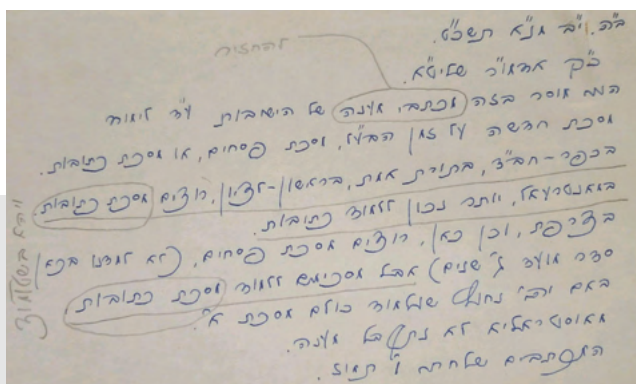 ב"ה. י"ב מנ"א תשכ"ט.
להחזיר
כ"ק אדמו"ר שליט"א.
הנני מוסר בזה מכתבי מענה של הישיבות ע"ד לימוד
מסכת חדשה על זמן הבע"ל, מסכת פסחים, או מסכת כתובות.
בכפר-חב"ד, בתורת אמת, בראשון-לציון, רוצים מסכת כתובות.
במאנטרעאל, יותר נכון ללמוד כתובות.
בצרפת, וכן כאן, רוצים מסכת פסחים, (לא למדנו בכאן
סדר מועד ג' שנים) אבל מסכימים ללמוד מסכת כתובות
באם יהי' נחוץ שילמדו כולם מסכת א'.
מאוסטראליא לא נתקבל מענה.
המכתבים שלחתי ו' תמוז.